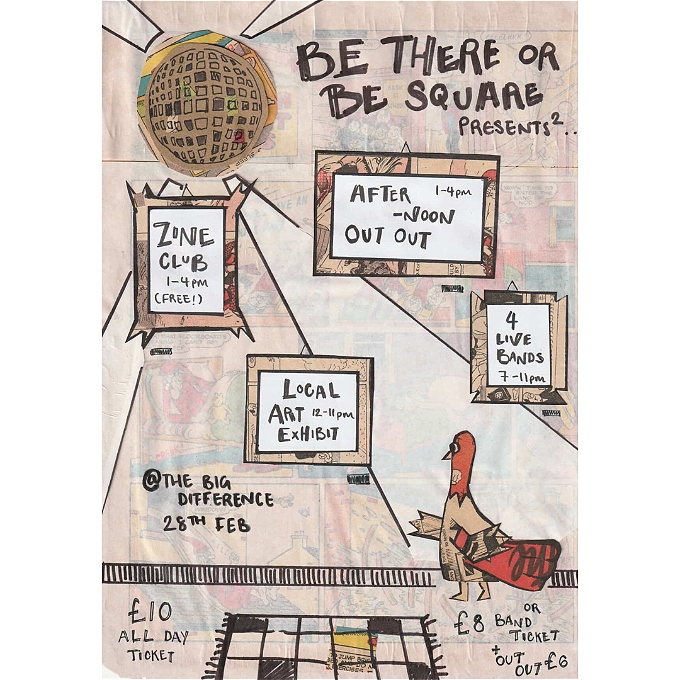 BE THERE OR
BE SQUARE
PRESENTS²..
AFTER 1-4pm
-NOON
OUT OUT
ZINE
CLUB
1-4pm
(FREE!)
4
LIVE
BANDS
7-11pm
LOCAL
ART 12-11pm
EXHIBIT
@THE BIG
DIFFERENCE
28TH FEB
£10
ALL DAY
TICKET
OR
£8 BAND
TICKET
+OUT
OUT £6